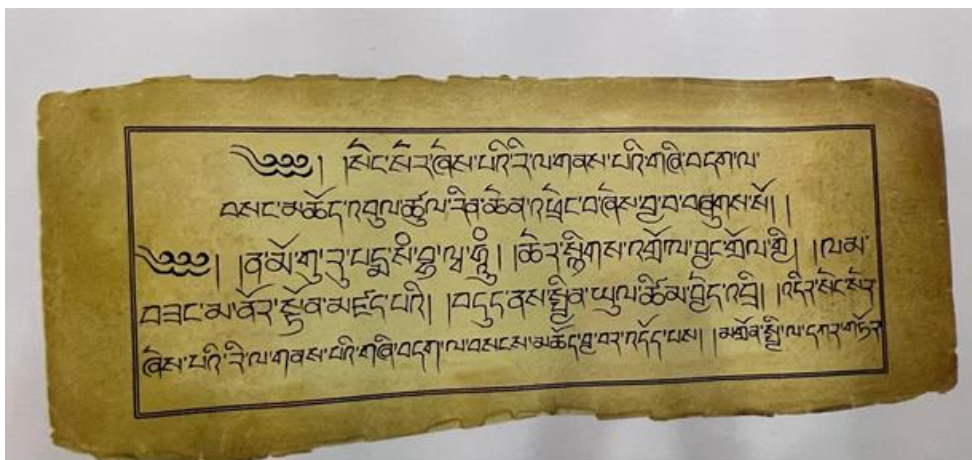 ༄༅༅། །སེང་སེར་ཞེས་པའི་རི་ལ་གནས་པའི་གཞི་བདག་ལ་
བསང་མཆོད་འབུལ་ཚུལ་རིན་ཆེན་འཕྲེང་བ་ཞེས་བྱ་བ་བཞུགས་སོ། །
༄༅༅། །ན་མོ་གུ་རུ་པདྨ་སཾ་བྷ་ཝ་ཧཱུྃ། །ཆེར་སྙིགས་འགྲོ་ལ་བྱང་གྲོལ་གྱི། །ལམ་
བཟང་མ་ནོར་སྟོན་མཛད་པའི། །བདུད་ནས་སྦྱིན་ཡུལ་ཚིམ་བྱེད་འབྲི། །འདིར་སེང་སེར་
ཞེས་པའི་རི་ལ་གནས་པའི་གཞི་བདག་ལ་བསངས་མཆོད་བྱ་བར་འདོད་པས། །མགྲོན་སྤྱི་ལ་དཀར་གཏོར་